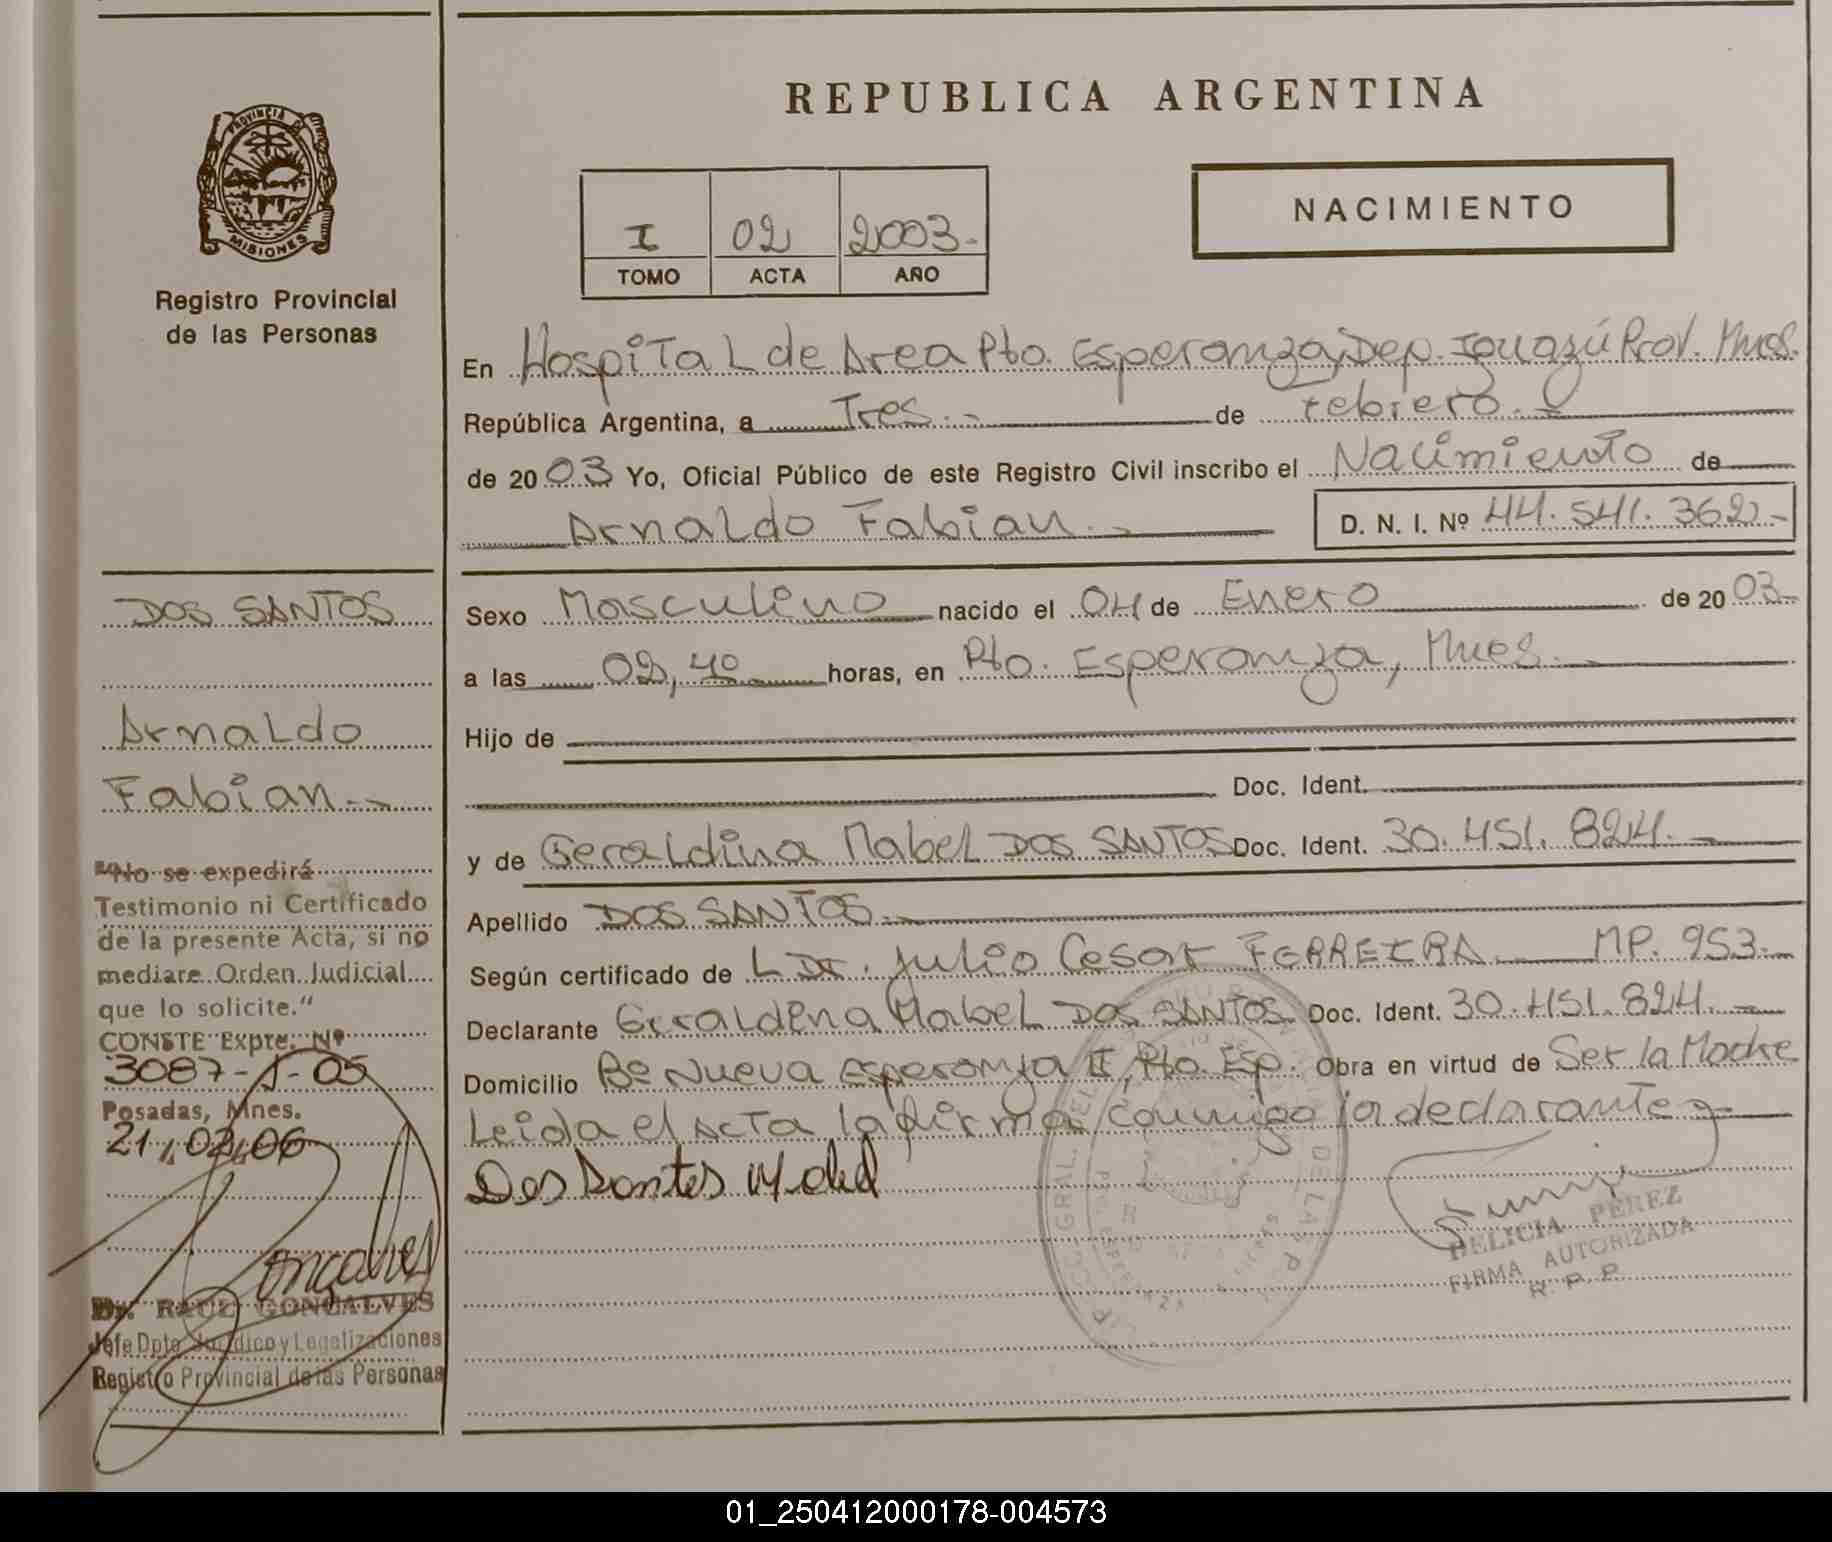 REPUBLICA ARGENTINA
PROVINCIA DE
MISIONES
Registro Provincial
de las Personas
I 02 2003-
TOMO ACTA AÑO
NACIMIENTO
En Hospital de Area Pto. Esperanza, Dep. Iguazú Prov. Mnes.
República Argentina, a Tres.- de febrero.-
de 20 03 Yo, Oficial Público de este Registro Civil inscribo el Nacimiento de
Arnaldo Fabian.- D. N. I. Nº 44.541.362.-
DOS SANTOS
Arnaldo
Fabian.-
Sexo Masculino nacido el 04 de Enero de 20 03-
a las 02,40 horas, en Pto. Esperanza, Mnes.-
Hijo de
Doc. Ident.
y de Geraldina Mabel DOS SANTOS Doc. Ident. 30.451.824.-
Apellido DOS SANTOS.-
Según certificado de Julio Cesar FERREIRA. MP. 953.-
Declarante Geraldina Mabel DOS SANTOS Doc. Ident. 30.451.824.-
Domicilio Bº Nueva Esperanza II, Pto. Esp. Obra en virtud de Ser la Madre
Leida el Acta la firma conmigo la declarante.-
"No se expedirá
Testimonio ni Certificado
de la presente Acta, si no
mediare Orden Judicial
que lo solicite."
CONSTE Expte. Nº
3087-J-05
Posadas, Mnes.
21,02,06
Gonçalves
Dr. RAUL GONCALVES
Jefe Dpto. Jurídico y Legalizaciones
Registro Provincial de las Personas
Dos Santos
DELICIA PEREZ
FIRMA AUTORIZADA
R. P. P.
01_250412000178-004573